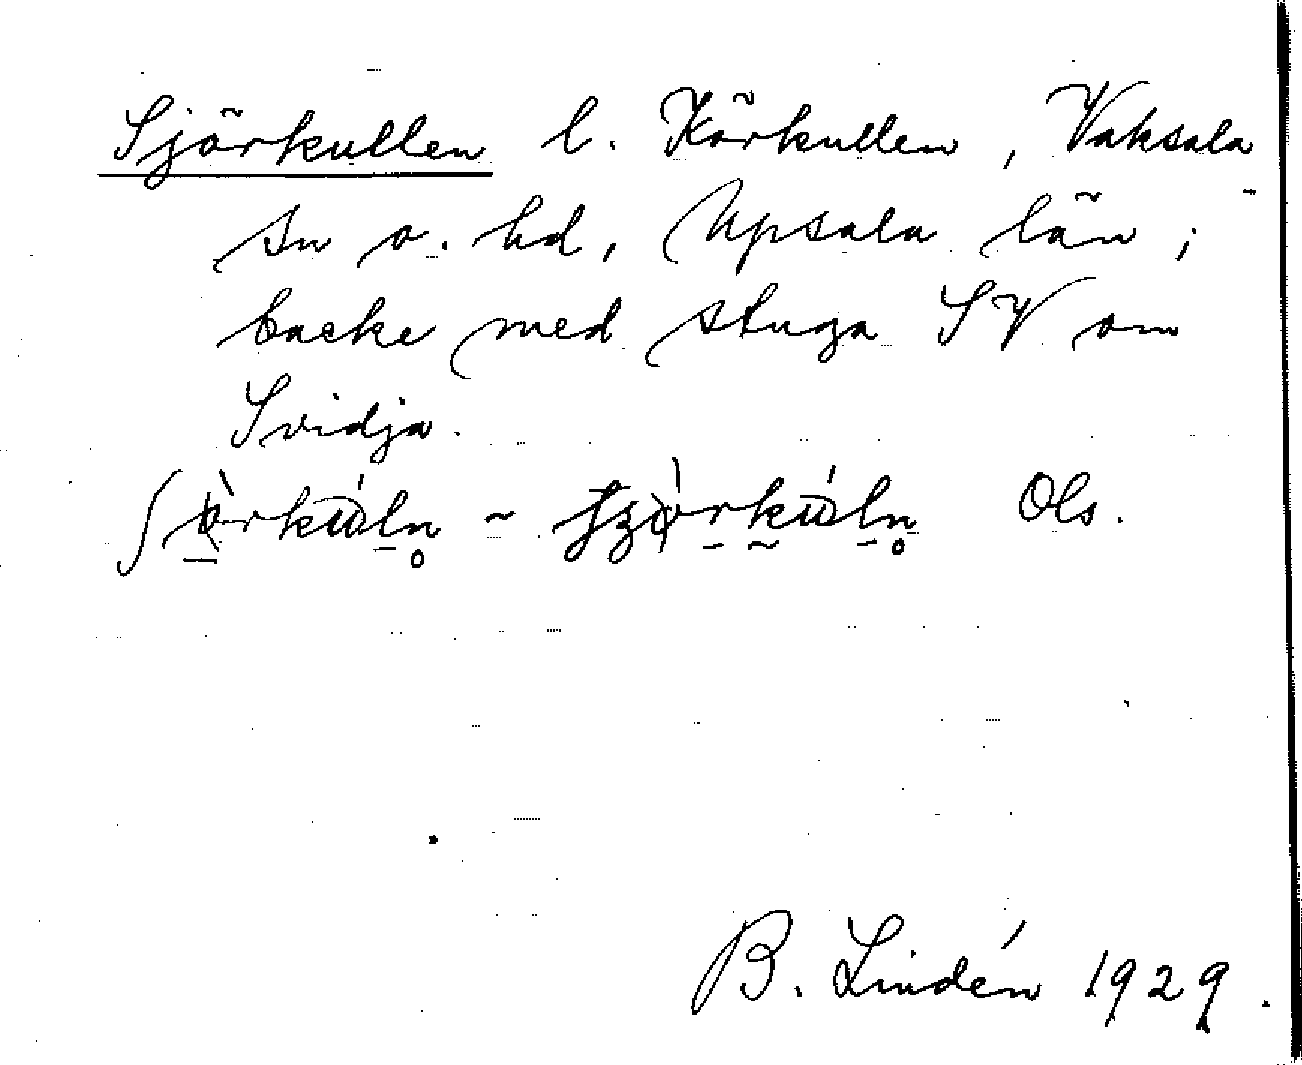 Sjörkullen l. Körkullen, Vaksala
sn o. hd, Upsala län;
backe med stuga SV om
Svidja.
Ols.
B. Lindén 1929.